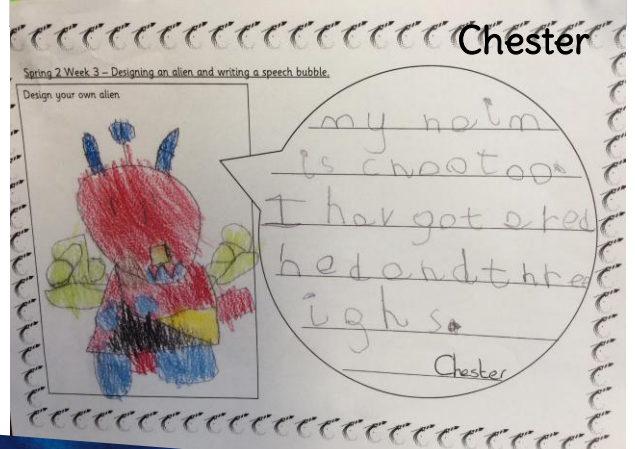 Chester
Spring 2 Week 3 – Designing an alien and writing a speech bubble.
Design your own alien
my naim
is cnootoo.
I hav got a red
hed and thre
ighs.
Chester